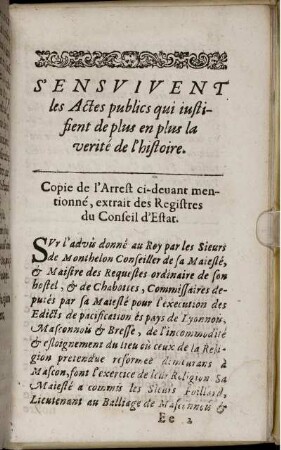 S'ENSVIVENT
les Actes publics qui iusti-
fient de plus en plus la
verité de l'histoire.
Copie de l'Arrest ci-deuant men-
tionné, extrait des Registres
du Conseil d'Estat.
SVr l'aduis donné au Roy par les Sieurs
de Monthelon Conseiller de sa Maiesté,
& Maistre des Requestes ordinaire de son
hostel, & de Chabottes, Commissaires de-
putés par sa Maiesté pour l'execution des
Edicts de pacification és pays de Lyonnois,
Masconnois & Bresse, de l'incommodité
& estoignement du lieu où ceux de la Reli-
gion pretendue reformeé demurans à
Mascon, font l'exercice de leur Religion Sa
Maiesté a commis les Foillard,
Lieutenant au Balliage de Masconnois &
Ee 2